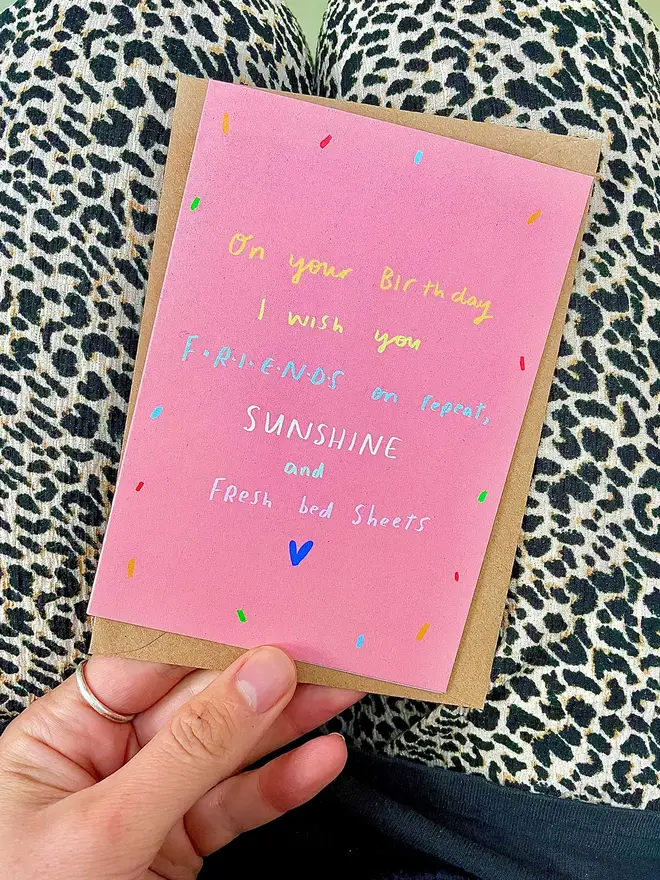 On your Birthday
I wish you
F•R•I•E•N•D•S on repeat,
SUNSHINE
and
Fresh bed Sheets